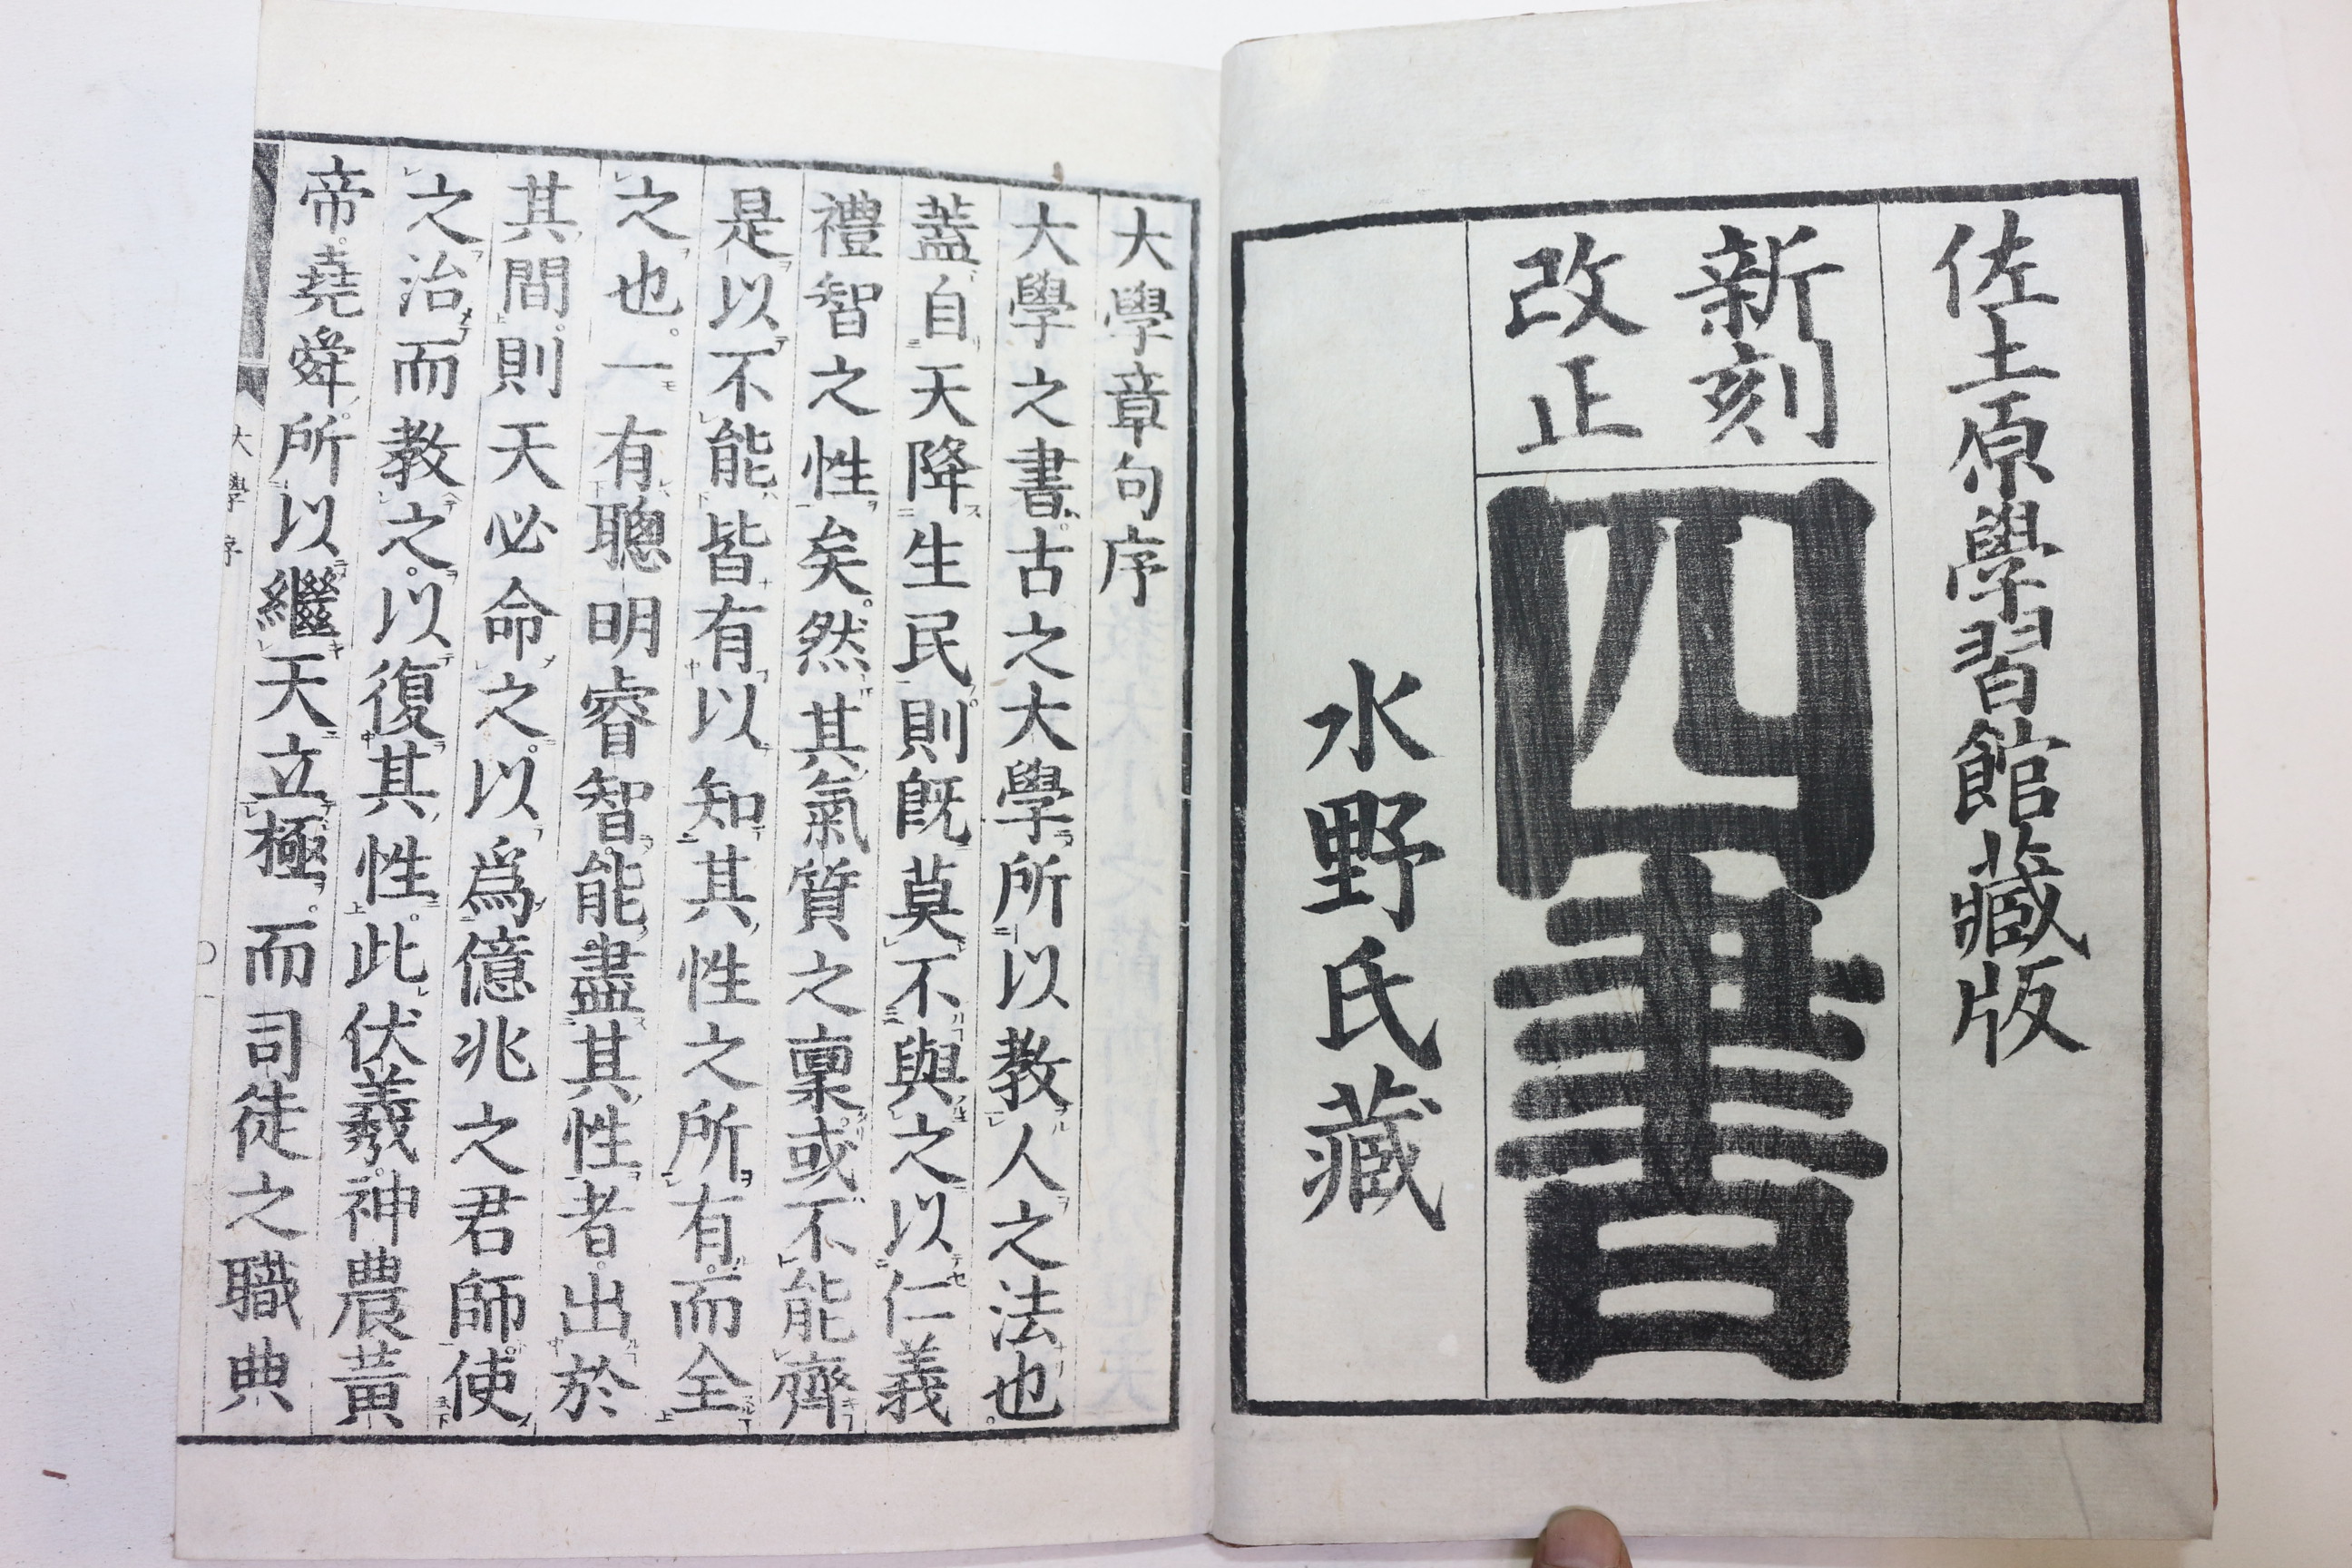 佐土原學習館藏版
新刻
改正
四書
水野氏藏
大學章句序
大學之書。古之大學所以教人之法也。
蓋自天降生民。則既莫不與之以仁義
禮智之性矣。然其氣質之稟或不能齊
是以不能皆有以知其性之所有。而全
之也。一有聰明睿智能盡其性者。出於
其間。則天必命之。以爲億兆之君師。使
之治而教之。以復其性。此伏羲。神農黃
帝。堯舜。所以繼天立極。而司徒之職典
大學序
〇一